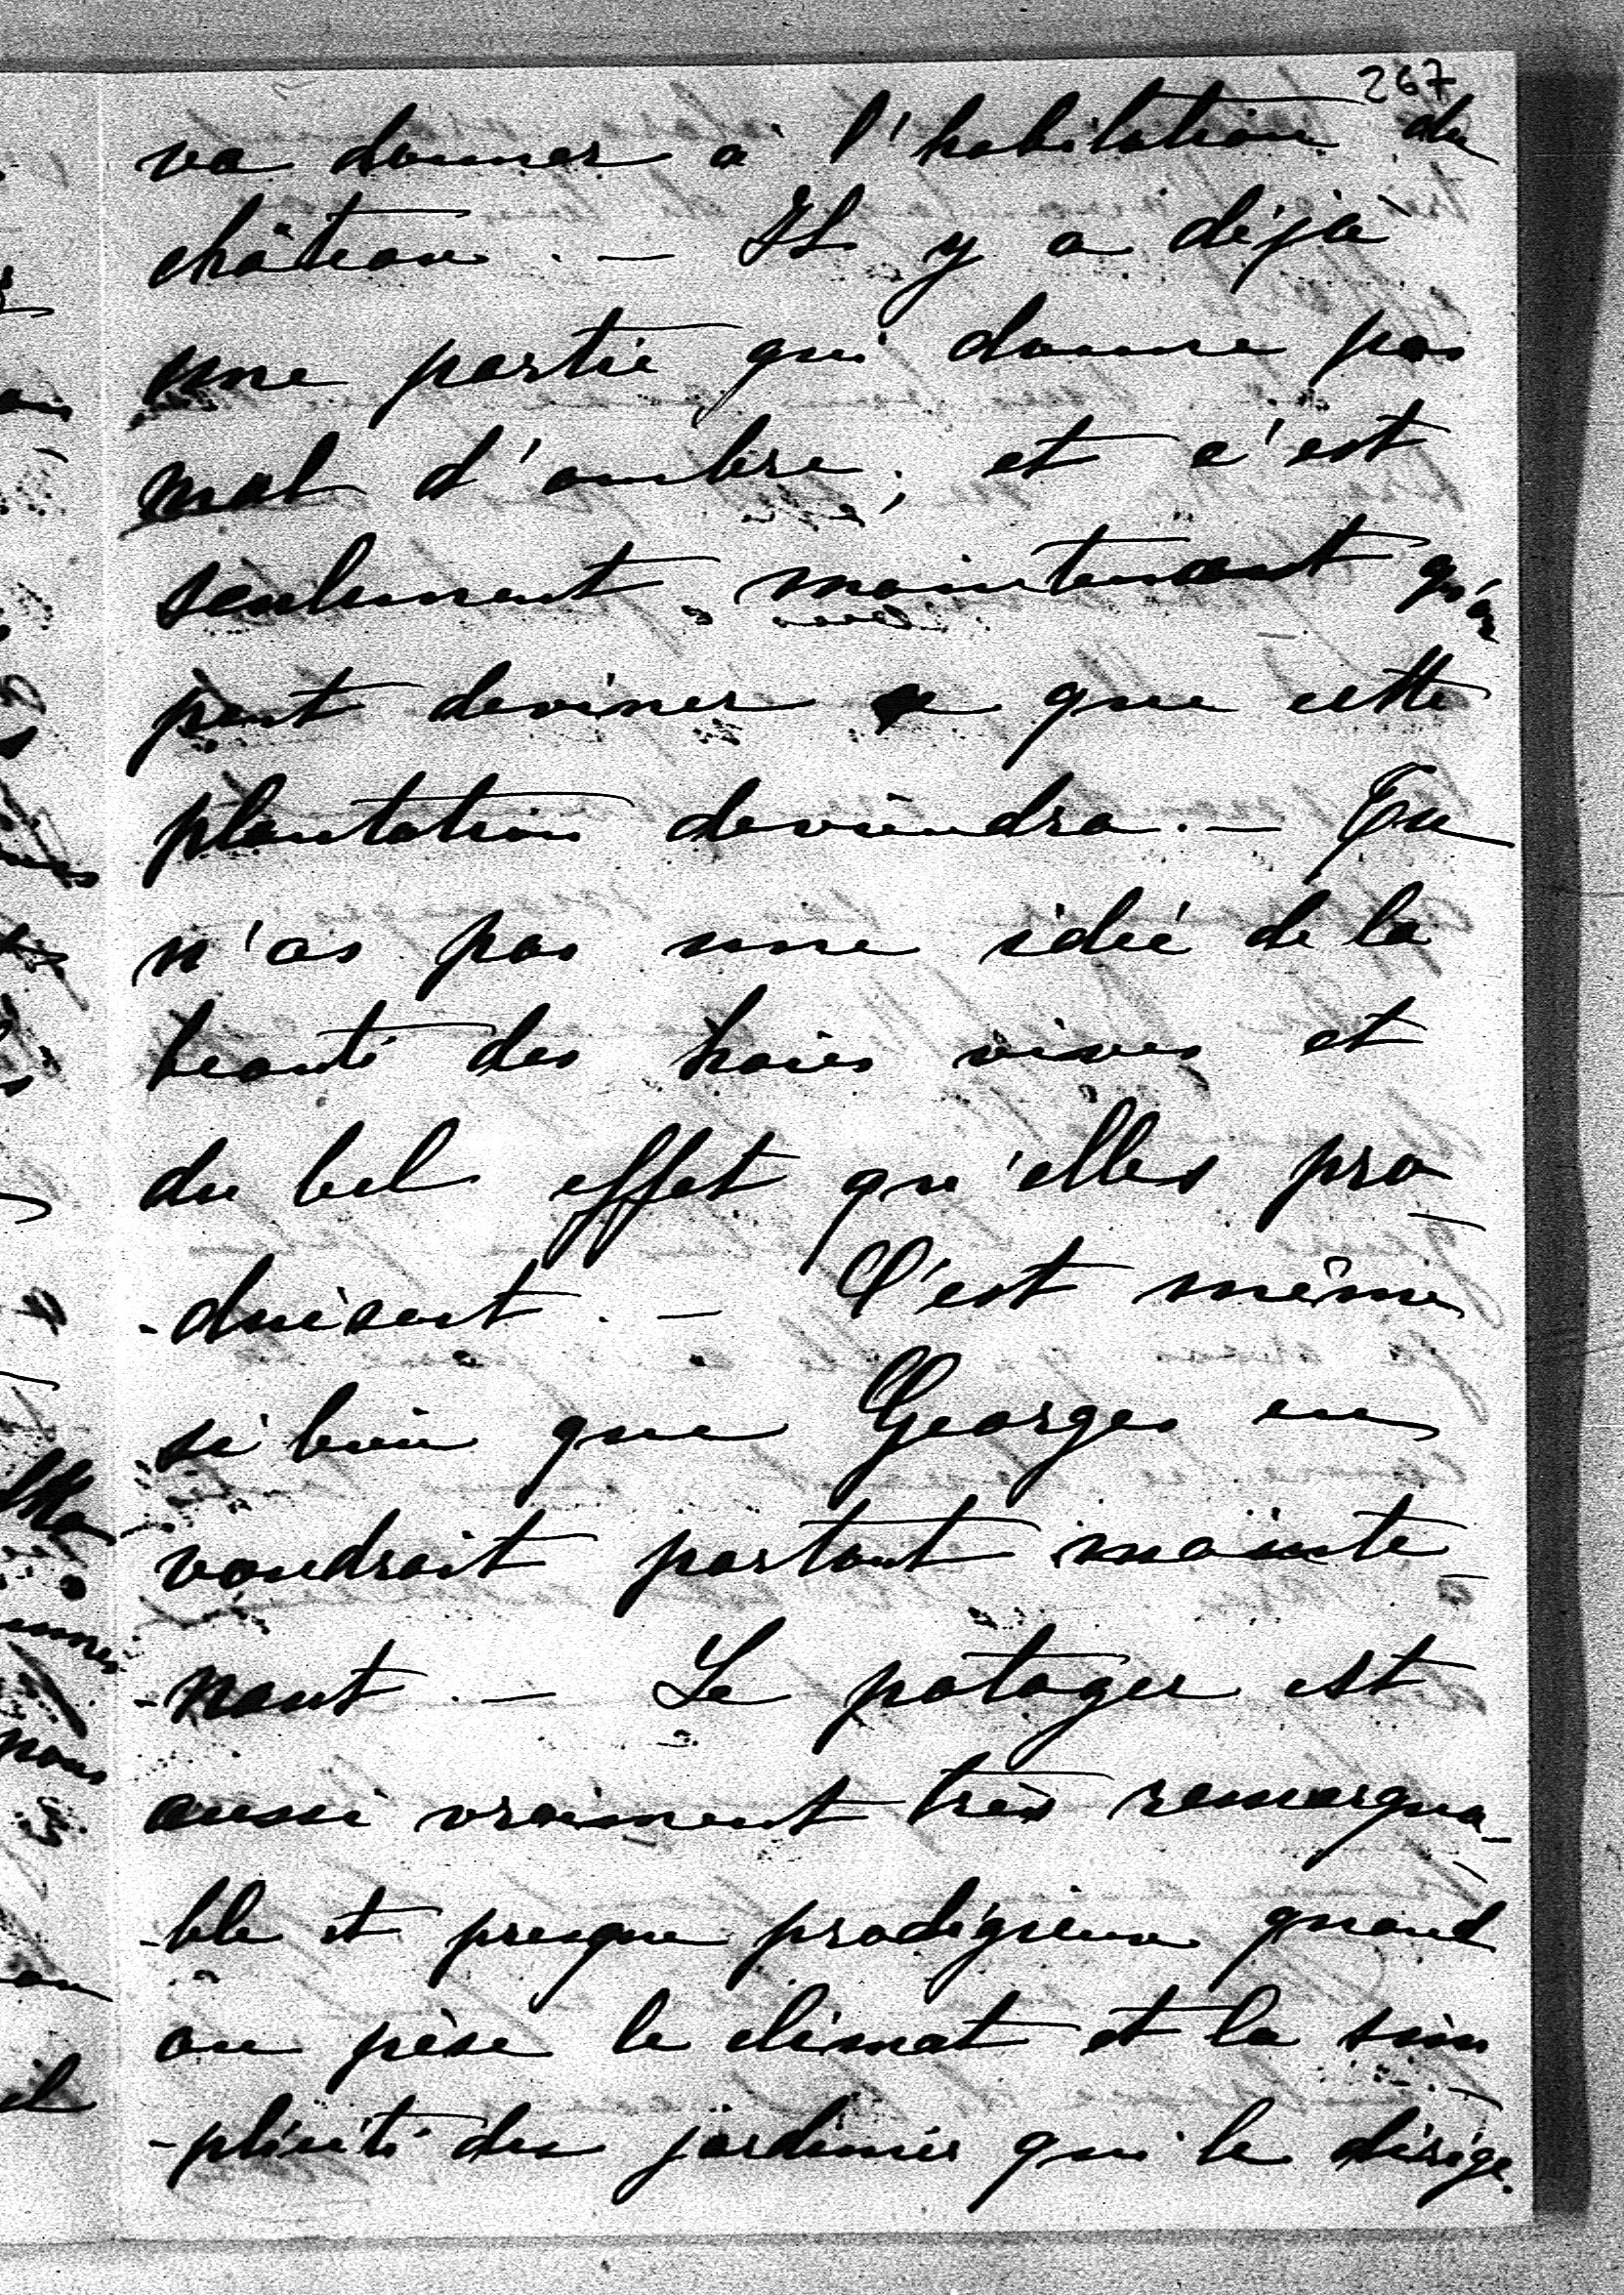 267
va donner à l'habitation du
château. — Il y a déjà
une partie qui donne pas
mal d'ombre; et c'est
seulement maintenant qu'on
peut deviner ce que cette
plantation deviendra. — Tu
n'as pas une idée de la
beauté des haies vives et
du bel effet qu'elles pro-
-duisent. — C'est même
si bien que Georges en
voudrait partout mainte-
-nant. — Le potager est
aussi vraiment très remarqua-
-ble et presque prodigieux quand
on pèse le climat et la sim-
-plicité du jardinier qui le dirige.